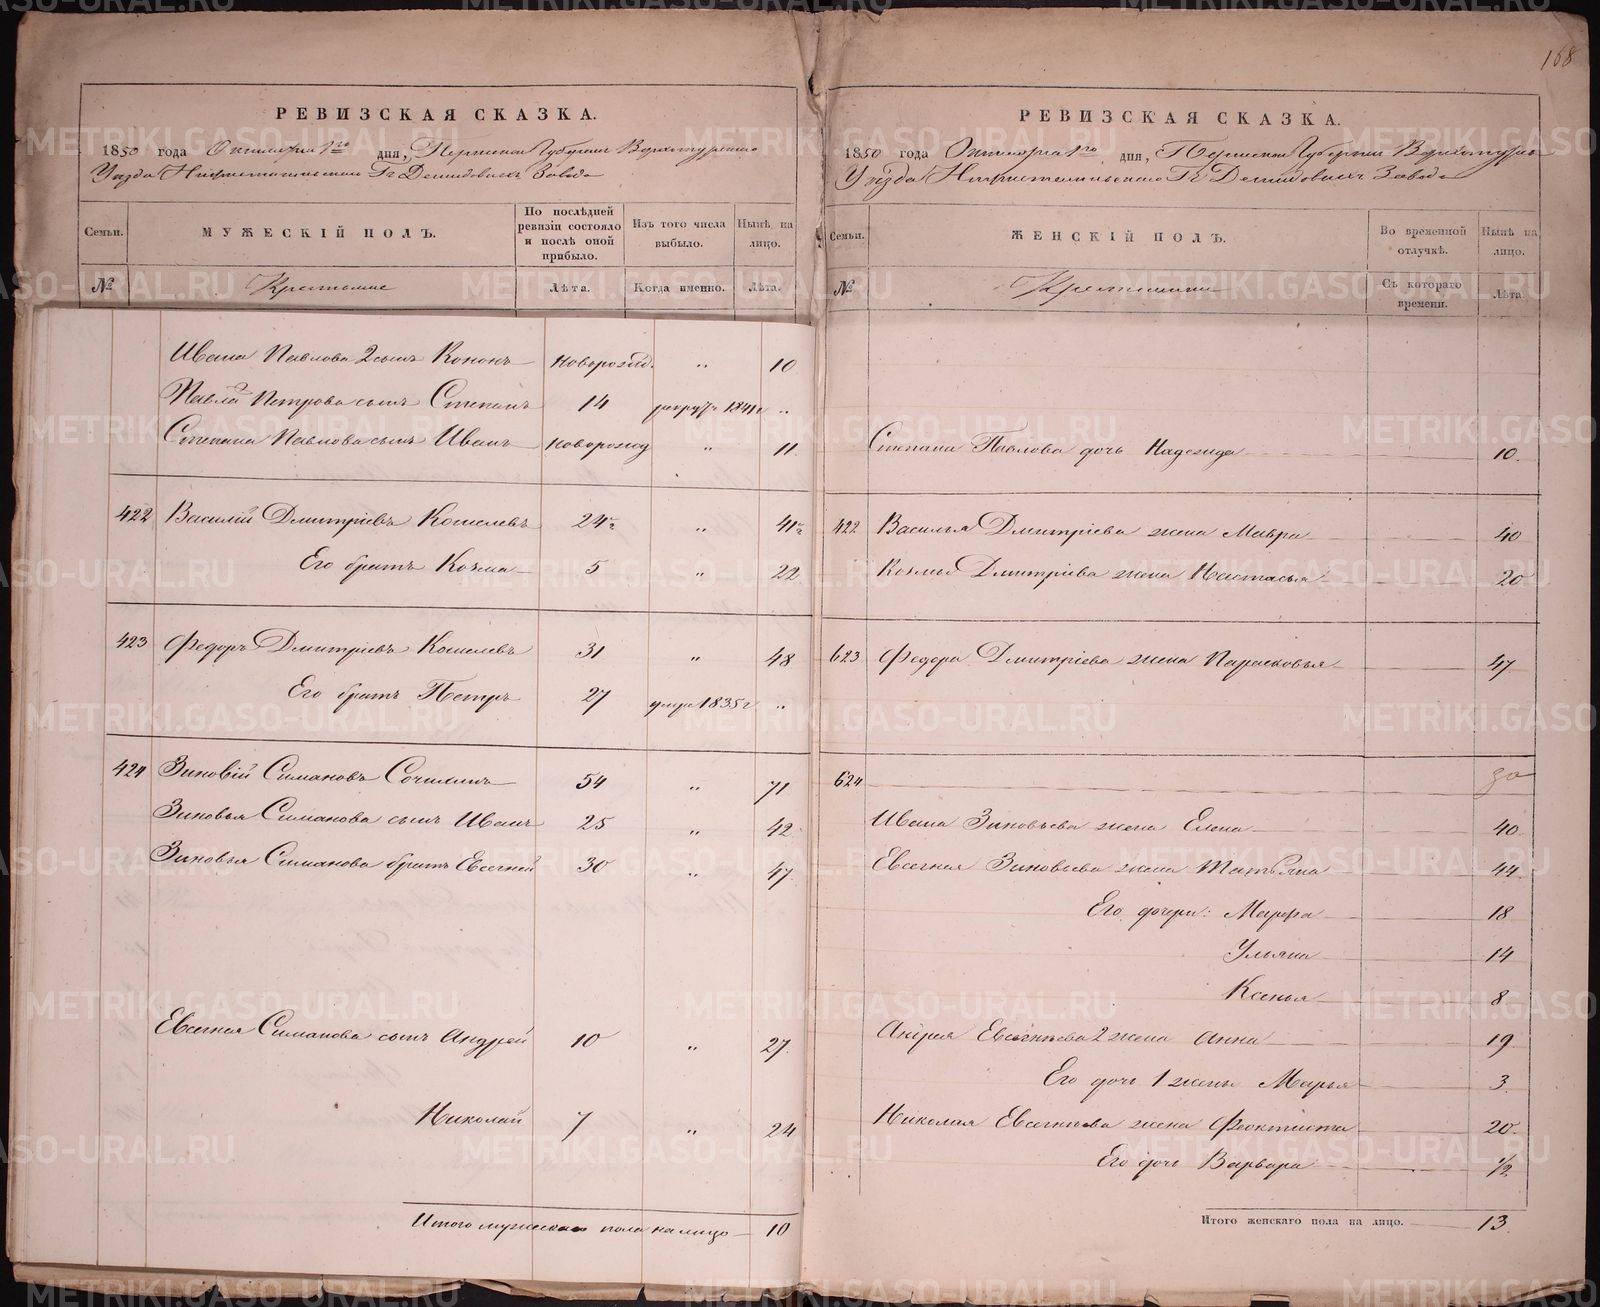 168
РЕВИЗСКАЯ СКАЗКА.
1850 года Октября 1го дня, Пермской Губернии Верхотурскаго
Уезда Нижнетагильскаго Гг Демидовыхъ Завода
Семьи.
МУЖЕСКІЙ ПОЛЪ.
По послѣдней ревизіи состояло и послѣ оной прибыло.
Изъ того числа выбыло.
Нынѣ на лицо.
№
Крестьяне
Лѣта.
Когда именно.
Лѣта.
Ивана Павлова 2 сынъ Кононъ новорожд. „ 10
Павла Петрова сынъ Степанъ 14 рекрут 1841 г „
Степана Павлова сынъ Иванъ новорожд „ 11
422 Василій Дмитріевъ Кошелевъ 24½ „ 41½
Его братъ Козма 5 „ 22
423 Федоръ Дмитріевъ Кошелевъ 31 „ 48
Его братъ Петръ 27 умре 1835 г „
424 Зиновій Симановъ 54 „ 71
Зиновья Симанова сынъ Иванъ 25 „ 42
Зиновья Симанова братъ Евсегней 30 „ 47
Евсегнея Симанова сынъ Андрей 10 „ 27
Николай 7 „ 24
Итого мужеска пола на лицо 10
РЕВИЗСКАЯ СКАЗКА.
1850 года Октября 1го дня, Пермской Губерніи Верхотурск
Уѣзда Нижнетагильскаго Гг Демидовыхъ Завода
Семьи.
ЖЕНСКІЙ ПОЛЪ.
Во временной отлучкѣ.
Нынѣ на лицо.
№
Крестьянки
Съ котораго времени.
Лѣта.
Степана Павлова дочь Надежда 10.
422 Василья Дмитріева жена Мавра 40
Козмы Дмитріева жена Настасья 20
623 Федора Дмитріева жена Парасковья 47
624
Ивана Зиновьева жена Елена 40
Евсегнея Зиновьева жена Татьяна 44
Его дочери: Марфа 18
Ульяна 14
Ксенья 8
Андрея Евсегнѣева 2 жена Анна 19
Его дочь 1 жены Марья 3
Николая Евсегнѣева жена Феоктиста 20
Его дочь Варвара 1/2
Итого женскаго пола на лицо. 13
METRIKI.GASO-URAL.RU